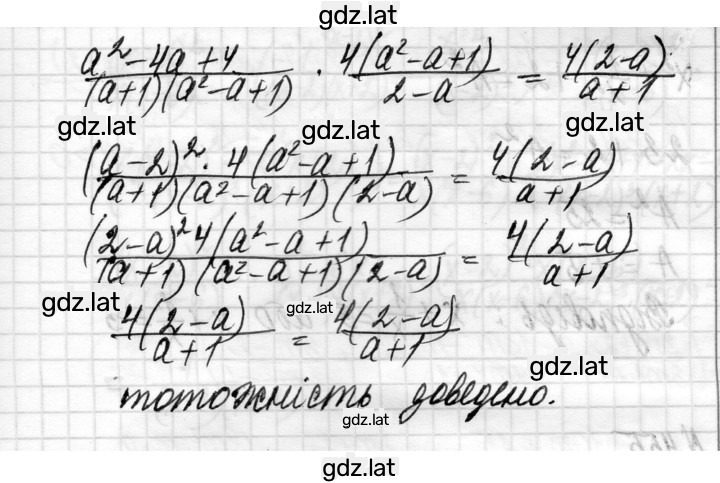 gdz.lat
(a² - 4a + 4)/((a+1)(a² - a + 1)) · 4(a² - a + 1)/(2 - a) = 4(2 - a)/(a + 1)
gdz.lat gdz.lat gdz.lat
((a - 2)² · 4(a² - a + 1))/((a + 1)(a² - a + 1)(2 - a)) = 4(2 - a)/(a + 1)
((2 - a)² 4(a² - a + 1))/((a + 1)(a² - a + 1)(2 - a)) = 4(2 - a)/(a + 1)
gdz.lat gdz.lat
4(2 - a)/(a + 1) = 4(2 - a)/(a + 1)
gdz.lat
тотожність доведено.
gdz.lat
gdz.lat